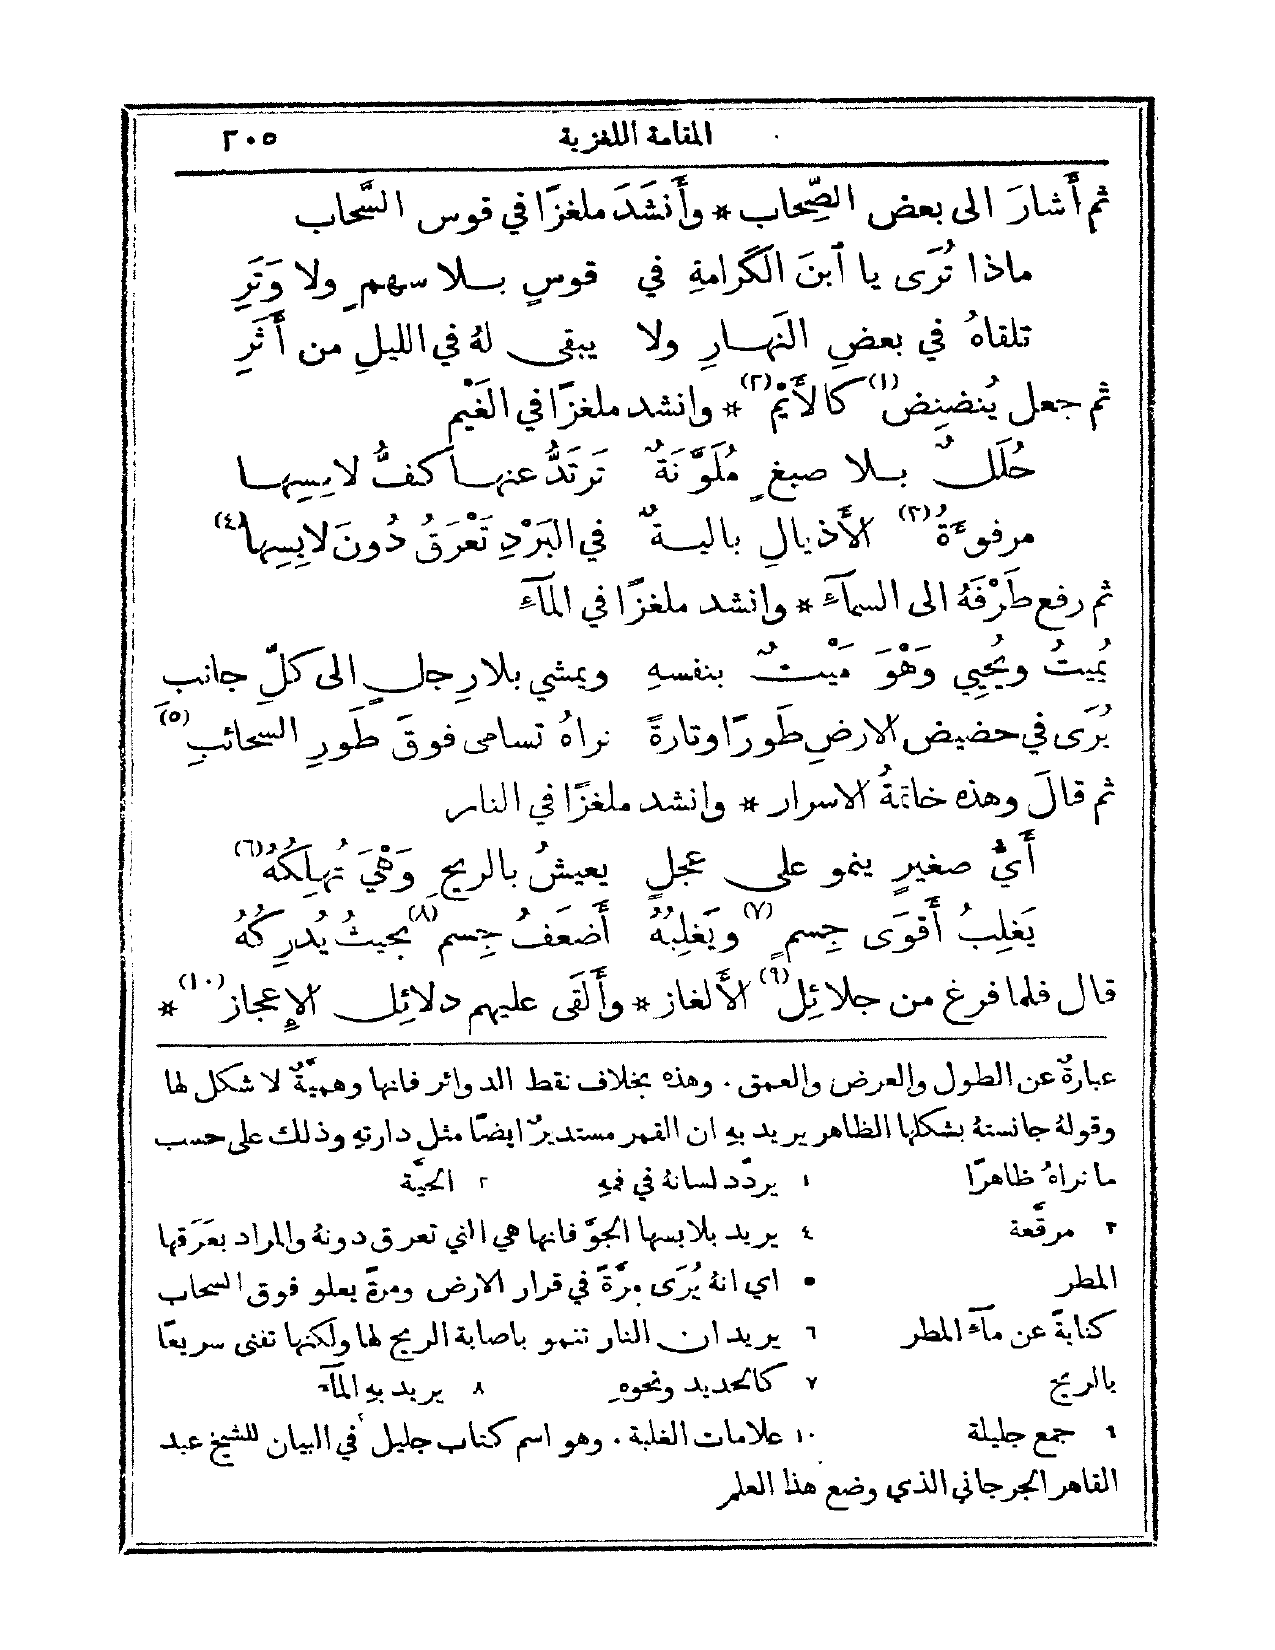 المقامة اللغزية ٢٠٥
ثم أَشارَ الى بعض الصِّحاب * وأَنشَدَ ملغزًا في قوس السَّحاب
ماذا تُرَى يا ٱبنَ الكَرامةِ في قوسٍ بلا سهمٍ ولا وَتَرِ
تلقاهُ في بعضِ النَهارِ ولا يبقى لهُ في الليلِ من أَثَرِ
ثم جعل يُنضنِض(١) كالأَيْم(٢) * وانشد ملغزًا في الغَيْم
حُلَلٌ بلا صبغٍ مُلَوَّنَةٌ تَرتَدُّ عنها كفُّ لابِسِها
مرفوءَةُ(٣) الأَذيالِ باليةٌ في البَرْدِ تَعْرَقُ دُونَ لابِسِها(٤)
ثم رفع طَرْفَهُ الى السمآءِ * وانشد ملغزًا في المآءِ
يُميتُ ويُحيِي وَهْوَ مَيْتٌ بنفسهِ ويمشي بلا رِجلٍ الى كلِّ جانبِ
يُرَى في حضيض الارضِ طَورًا وتارةً نراهُ تسامى فوقَ طَورِ السحائبِ(٥)
ثم قالَ وهذه خاتمةُ الاسرار * وانشد ملغزًا في النار
أَيُّ صغيرٍ ينمو على عجلٍ يعيشُ بالريحِ وَهْيَ تُهلِكُهُ(٦)
يَغلِبُ أَقوَى جِسمٍ(٧) ويَغلِبُهُ أَضعَفُ جِسمٍ(٨) بحيثُ يُدرِكُهُ
قال فلما فرغ من جلائِلِ(٩) الأَلغاز * وأَلقَى عليهم دلائِل الإِعجاز(١٠) *
عبارةٌ عن الطول والعرض والعمق. وهذه بخلاف نقط الدوائر فانها وهميَّةٌ لا شكل لها
وقولهُ جانستهُ بشكلها الظاهر يريد بهِ ان القمر مستديرٌ ايضًا مثل دارتهِ وذلك على حسب
ما نراهُ ظاهرًا ١ يردّد لسانهُ في فمهِ ٢ الحيَّة
٣ مرقَّعة ٤ يريد بلابسها الجوَّ فانها هي التي تعرق دونهُ والمراد بعَرَقها
المطر ٥ اي انهُ يُرَى مرَّةً في قرار الارض ومرةً يعلو فوق السحاب
كنايةً عن مآءِ المطر ٦ يريد ان النار تنمو باصابة الريح لها ولكنها تفنى سريعًا
بالريح ٧ كالحديد ونحوهِ ٨ يريد بهِ المآءَ
٩ جمع جليلة ١٠ علامات الغلبة. وهو اسم كتاب جليل في البيان للشيخ عبد
القاهر الجرجاني الذي وضع هذا العلم